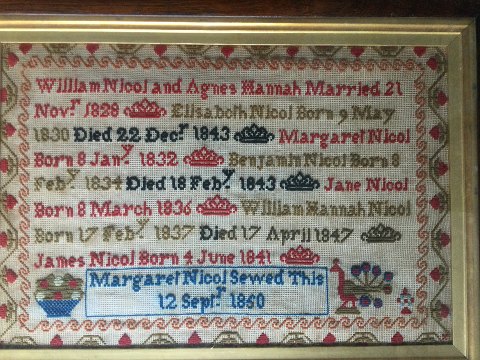 William Nicol and Agnes Hannah Married 21
Novr 1828 Elisabeth Nicol Born 9 May
1830 Died 22 Decr 1843 Margaret Nicol
Born 8 Jany 1832 Benjamin Nicol Born 8
Feby 1834 Died 18 Feby 1843 Jane Nicol
Born 8 March 1836 William Hannah Nicol
Born 17 Feby 1837 Died 17 April 1847
James Nicol Born 4 June 1841
Margaret Nicol Sewed This
12 Septr 1850